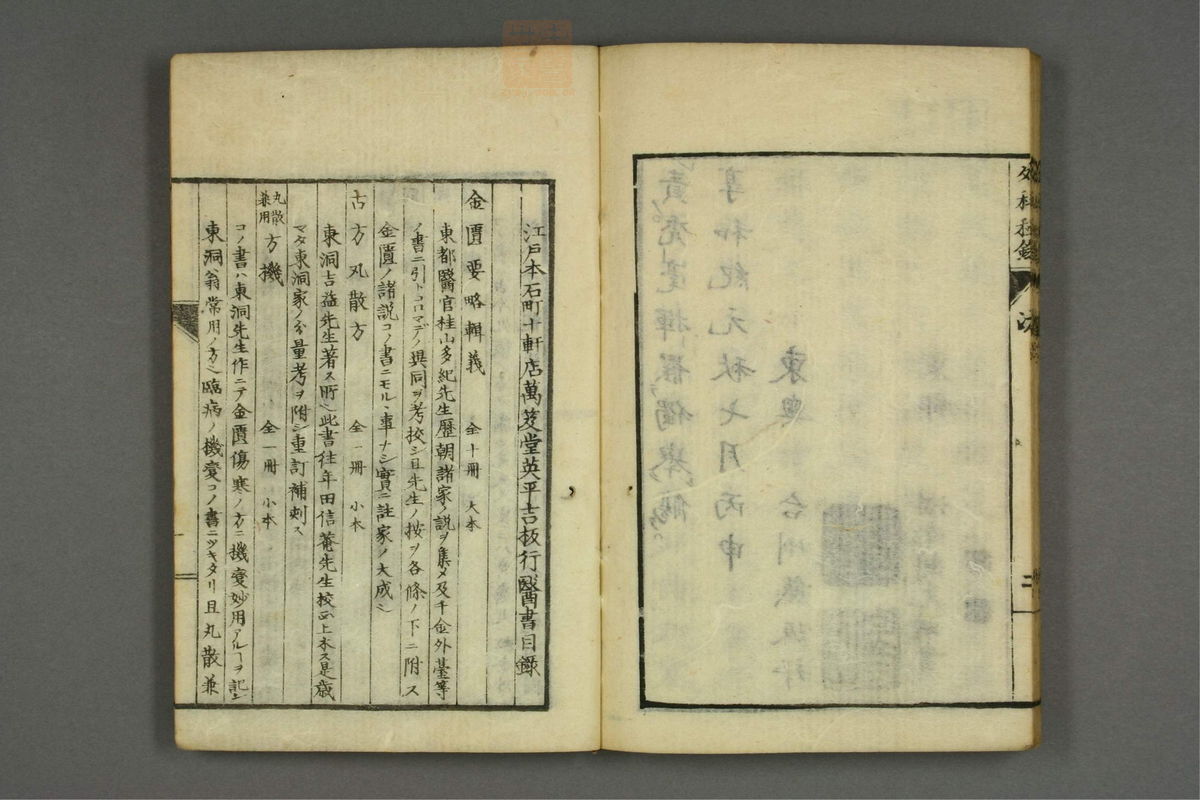 外科秘錄
江戸本石町十軒店萬笈堂英平吉板行醫書目録
金匱要略輯義 全十冊 大本
東都醫官桂山多紀先生歴朝諸家ノ説ヲ集メ及千金外臺等
ノ書ニ引トコロマデノ異同ヲ考挍シ且先生ノ按ヲ各條ノ下ニ附ス
金匱ノ諸説コノ書ニモルヽ事ナシ實ニ註家ノ大成ﾆ
古方丸散方 全一冊 小本
東洞吉益先生著ス所ﾆ此書往年田信菴先生挍正上木ス是歳
マタ東洞家ノ分量考ヲ附シ重訂補刻ス
丸散兼用方機 全一冊 小本
コノ書ハ東洞先生作ニテ金匱傷寒ノ方ニ機変妙用アルヿヲ記ス
東洞翁常用ノ方ﾆ臨病ノ機変コノ書ニツキタリ且丸散兼